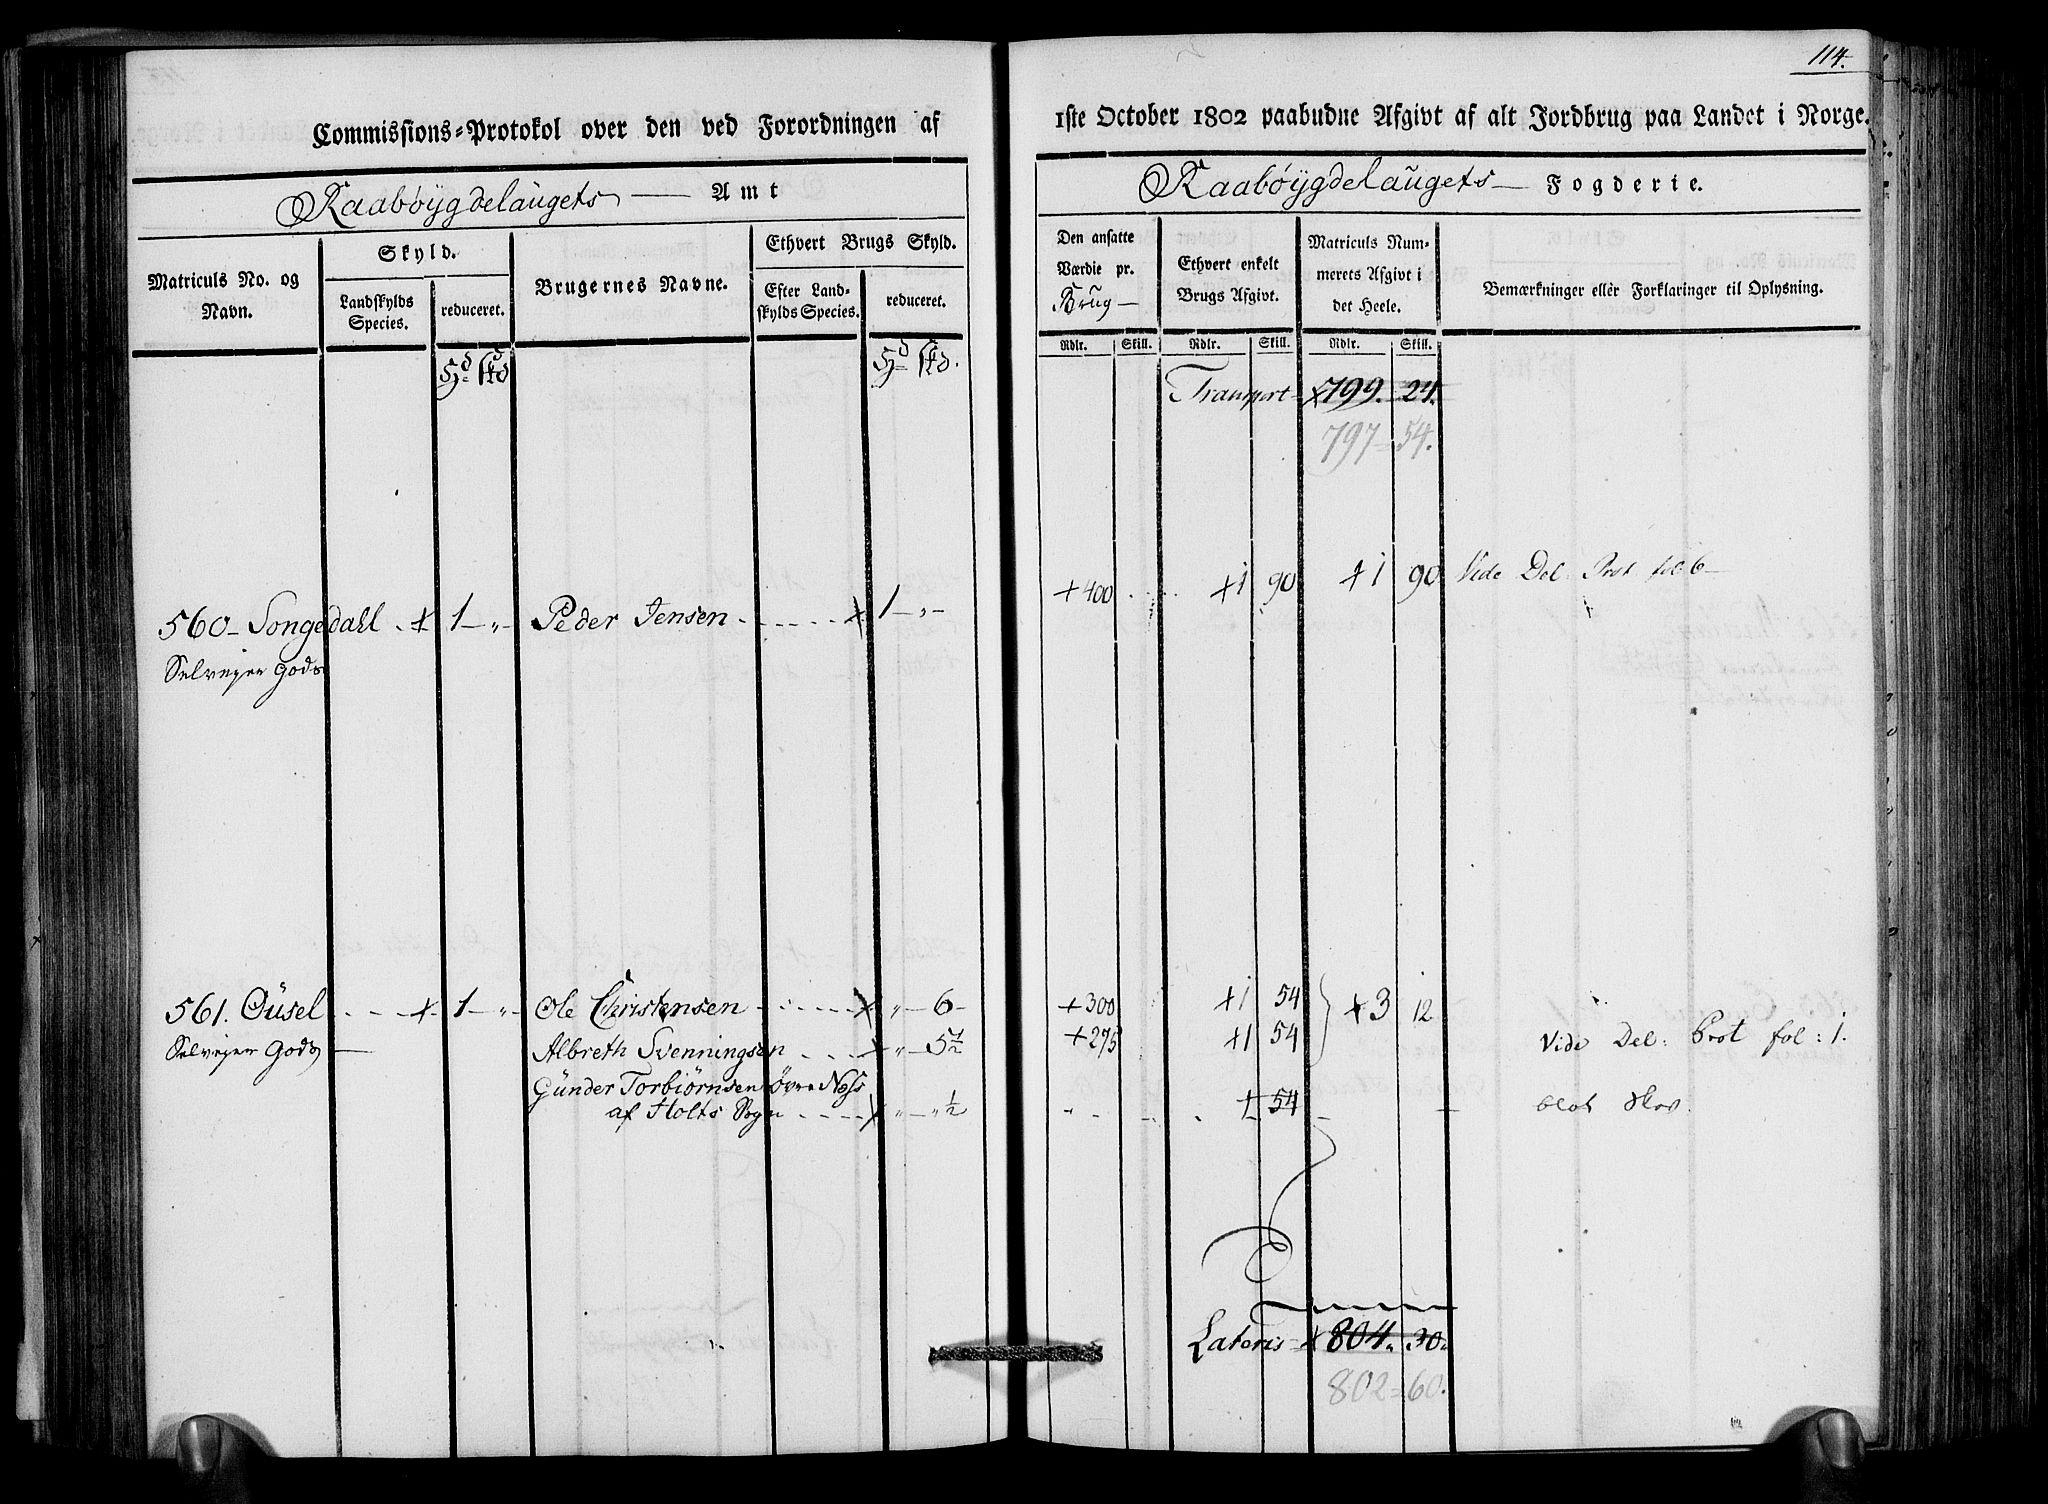 114.
Commissions=Protokol over den ved Forordningen af
1ste October 1802 paabudne Afgivt af alt Jordbrug paa Landet i Norge.
Raabøygdelaugets — Amt
Raabøygdelaugets — Fogderie.
Matriculs No. og Navn.
Skyld.
Landskylds Species.
reduceret.
Brugernes Navne.
Ethvert Brugs Skyld.
Efter Landskylds Species.
reduceret.
Den ansatte Værdie pr. Brug —
Ethvert enkelt Brugs Afgivt.
Matriculs Nummerets Afgivt i det Heele.
Bemærkninger eller Forklaringer til Oplysning.
Rdlr. Skill. Rdlr. Skill. Rdlr. Skill.
Transport — x799. 24.
797 = 54.
560 – Songedahl . x 1 – „ – Peder Jensen - - - - - - x 1 – „ – +400 . . . . x1 90 x1 90 Vide Del. Prot fol: 6 –
Selveyer Gods
561. Øüsel - - - x 1 – „ – Ole Christensen - - - - - x „ – 6 – +300 x1 54 } x3 12
Selveyer Gods — Albreth Svenningsen - - - x „ – 5½ +275 x1 54 Vide Del: Prot fol: 1.
Günder Torbiørnsen Øvre Næss
af Holts Sogn - - - - x „ – „ ½ „ - - - - 1 54 – — blot Skov.
Lateris – x804. 30.
802 = 60.